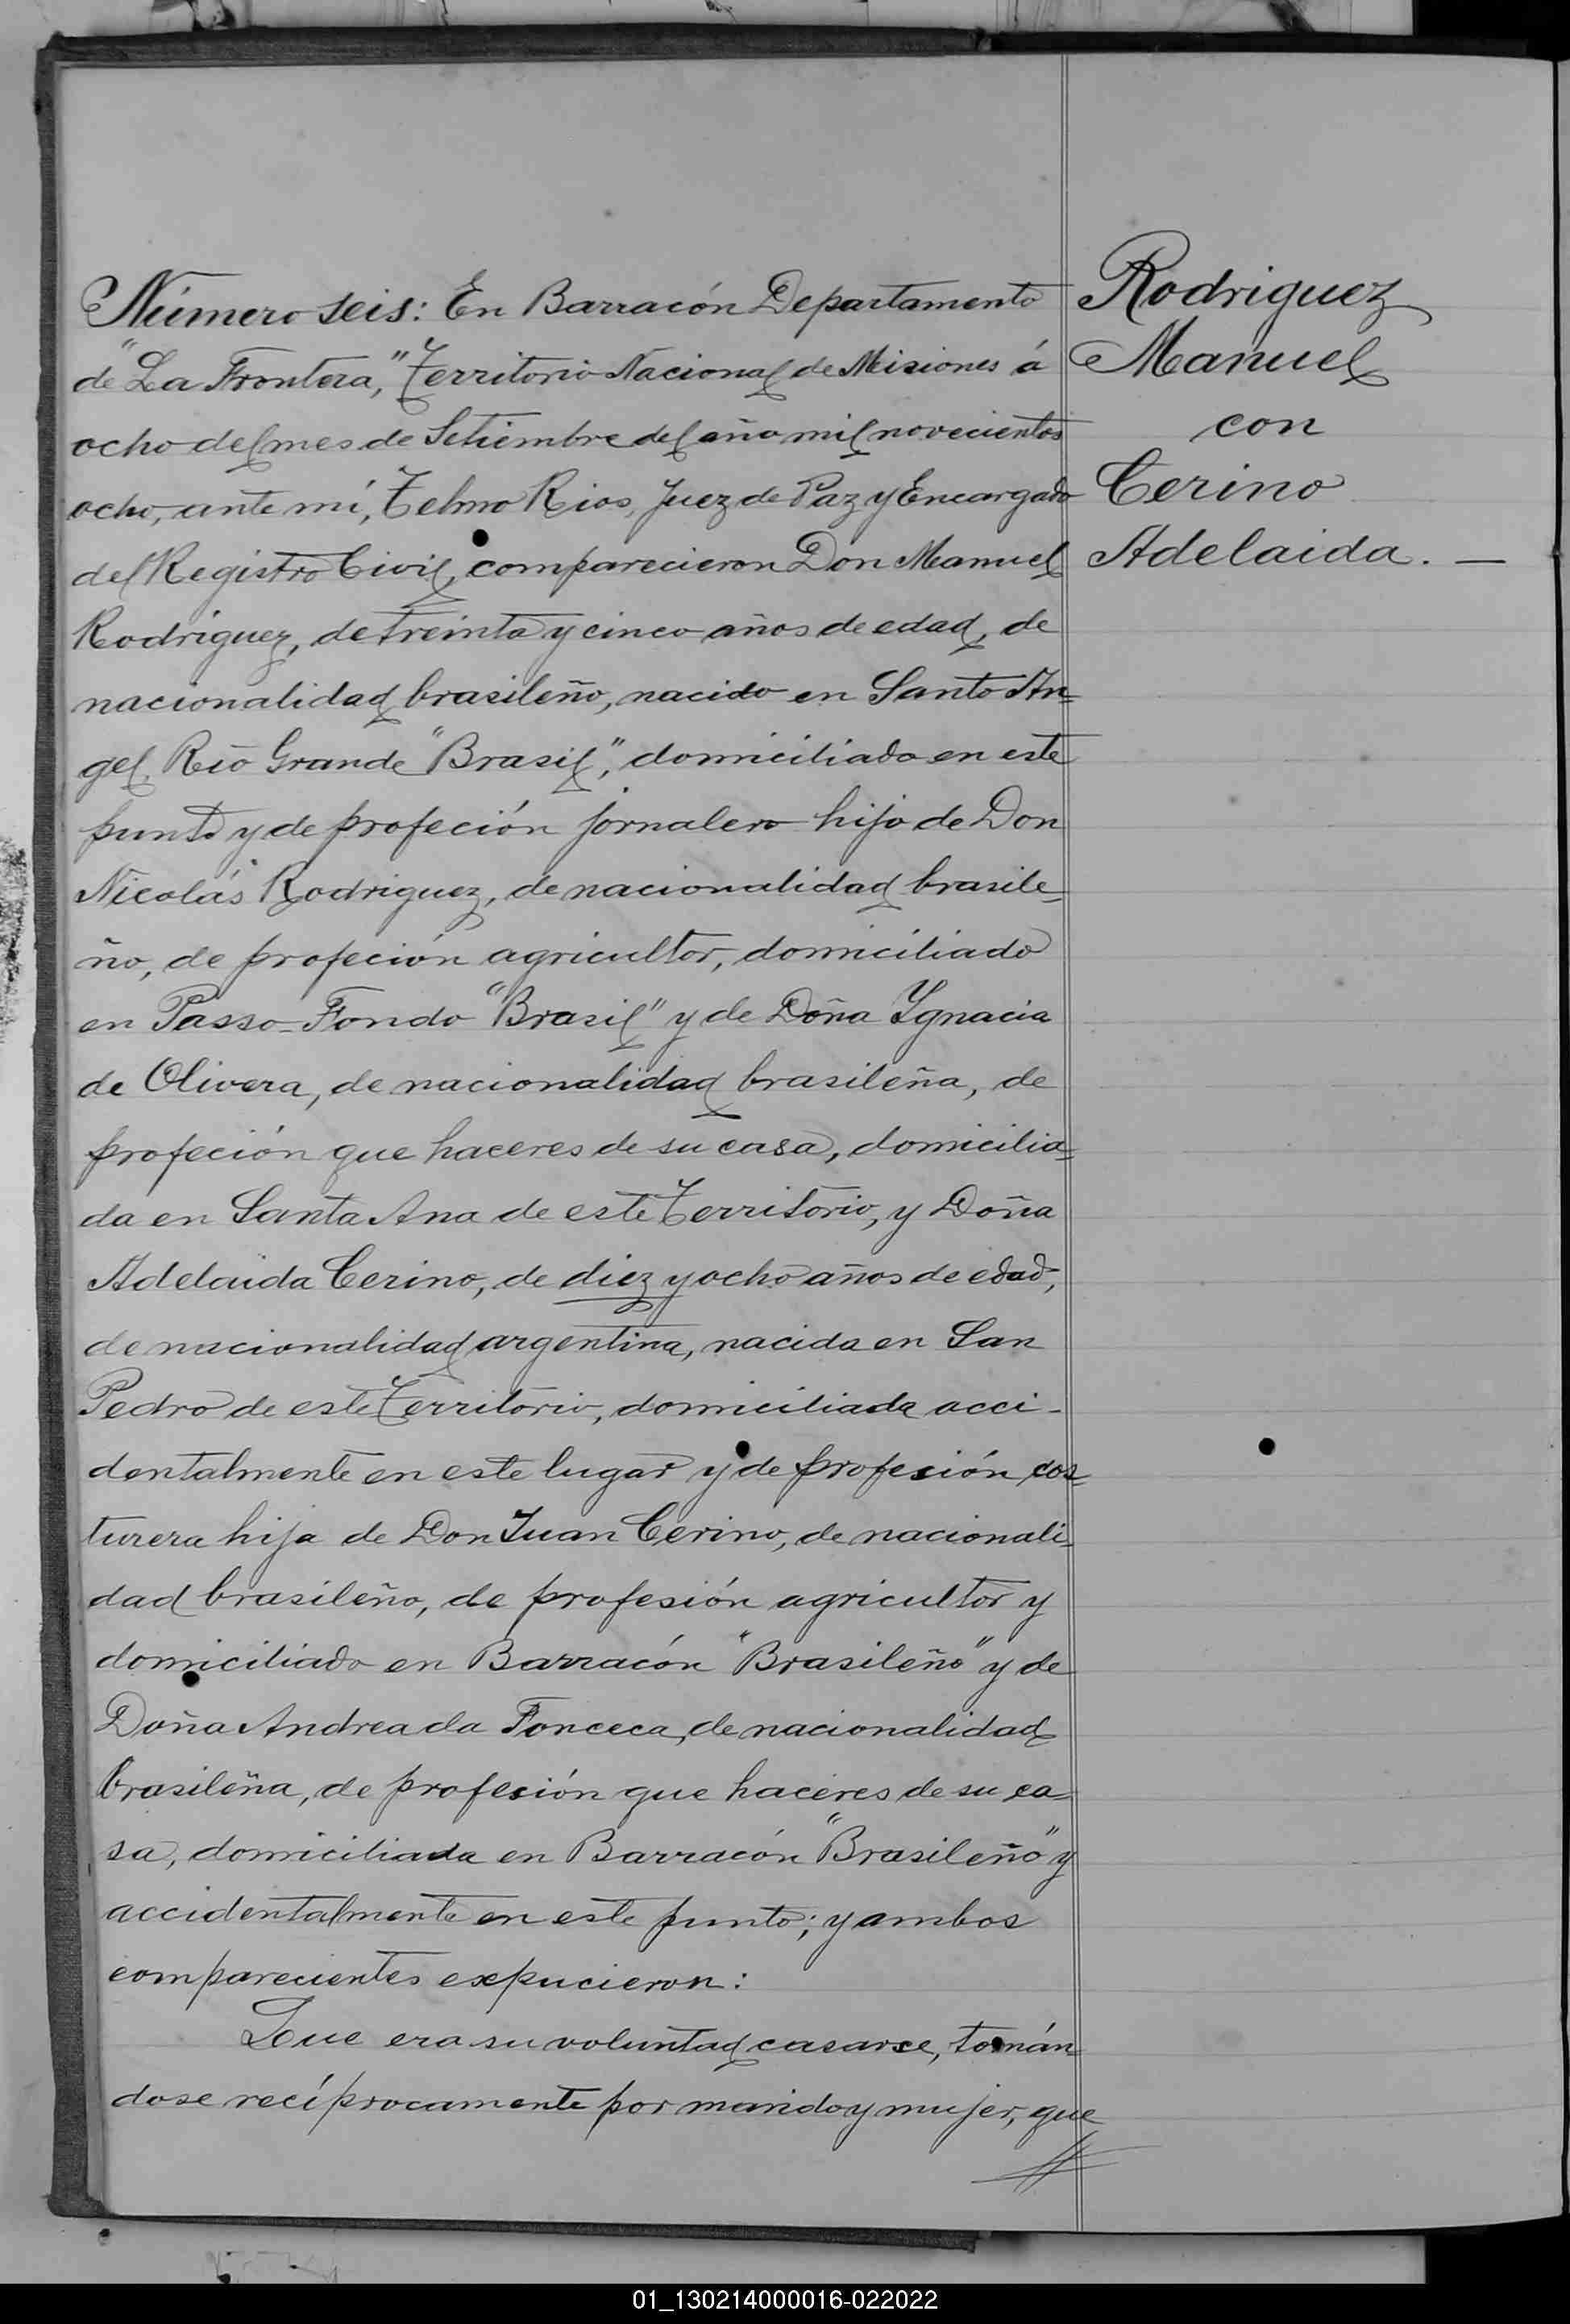 Número seis: En Barracón Departamento
de "La Frontera," Territorio Nacional de Misiones á
ocho del mes de Setiembre del año mil novecientos
ocho, ante mí, Telmo Rios, Juez de Paz y Encargado
del Registro Civil, comparecieron Don Manuel
Rodriguez, de treinta y cinco años de edad, de
nacionalidad brasileño, nacido en Santo An=
gel, Rio Grande "Brasil", domiciliado en este
punto y de profeción jornalero hijo de Don
Nicolás Rodriguez, de nacionalidad brasile=
ño, de profeción agricultor, domiciliado
en Passo-Fondo "Brasil" y de Doña Ygnacia
de Olivera, de nacionalidad brasileña, de
profeción que haceres de su casa, domicilia=
da en Santa Ana de este Territorio, y Doña
Adelaida Cerino, de diez y ocho años de edad,
de nacionalidad argentina, nacida en San
Pedro de este Territorio, domiciliada acci-
dentalmente en este lugar y de profesión cos=
turera hija de Don Juan Cerino, de nacionali-
dad brasileño, de profesión agricultor y
domiciliado en Barracón "Brasileño" y de
Doña Andrea da Fonceca, de nacionalidad
brasileña, de profesión que haceres de su ca=
sa, domiciliada en Barracón "Brasileño" y
accidentalmente en este punto; y ambos
comparecientes expucieron:
Que era su voluntad casarse, tomán
dose recíprocamente por marido y mujer, que
Rodriguez
Manuel
con
Cerino
Adelaida. —
01_130214000016-022022